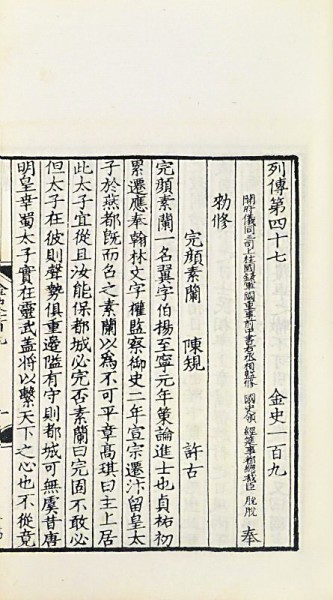 列傳第四十七　金史一百九
開府儀同三司上柱國錄軍國重事前中書右丞相監脩國史領經筵事都總裁臣脫脫奉
勑修
完顔素蘭　陳規　許古
完顔素蘭一名翼字伯揚至寧元年策論進士也貞祐初
累遷應奉翰林文字權監察御史二年宣宗遷汴留皇太
子於燕都既而召之素蘭以為不可平章高琪曰主上居
此太子宜從且汝能保都城必完否素蘭曰完固不敢必
但太子在彼則聲勢俱重邊隘有守則都城可無虞昔唐
明皇幸蜀太子實在靈武蓋將以繫天下之心也不從竟